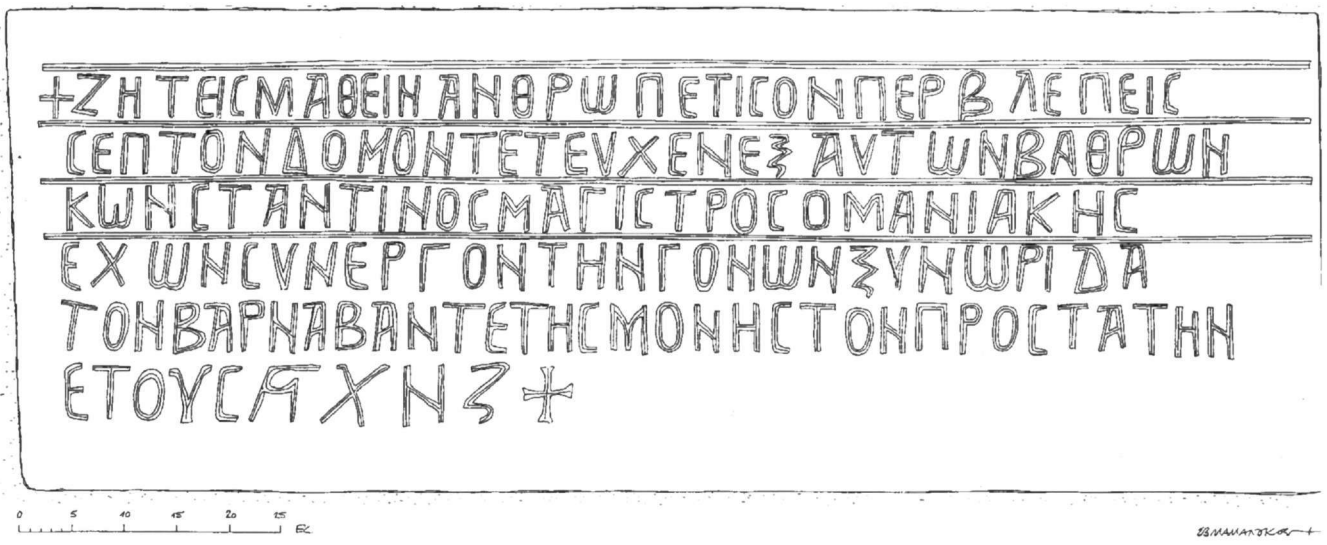 +ΖΗΤΕΙϹΜΑΘΕΙΝΑΝΘΡΩΠΕΤΙϹΟΝΠΕΡΒΛΕΠΕΙϹ
ϹΕΠΤΟΝΔΟΜΟΝΤΕΤΕΥΧΕΝΕΞΑΥΤΩΝΒΑΘΡΩΝ
ΚΩΝϹΤΑΝΤΙΝΟϹΜΑΓΙϹΤΡΟϹΟΜΑΝΙΑΚΗϹ
ΕΧΩΝϹΥΝΕΡΓΟΝΤΗΝΓΟΝΩΝΞΥΝΩΡΙΔΑ
ΤΟΝΒΑΡΝΑΒΑΝΤΕΤΗϹΜΟΝΗϹΤΟΝΠΡΟϹΤΑΤΗΝ
ΕΤΟΥϹΑΧΝΖ+
0 5 10 15 20 25